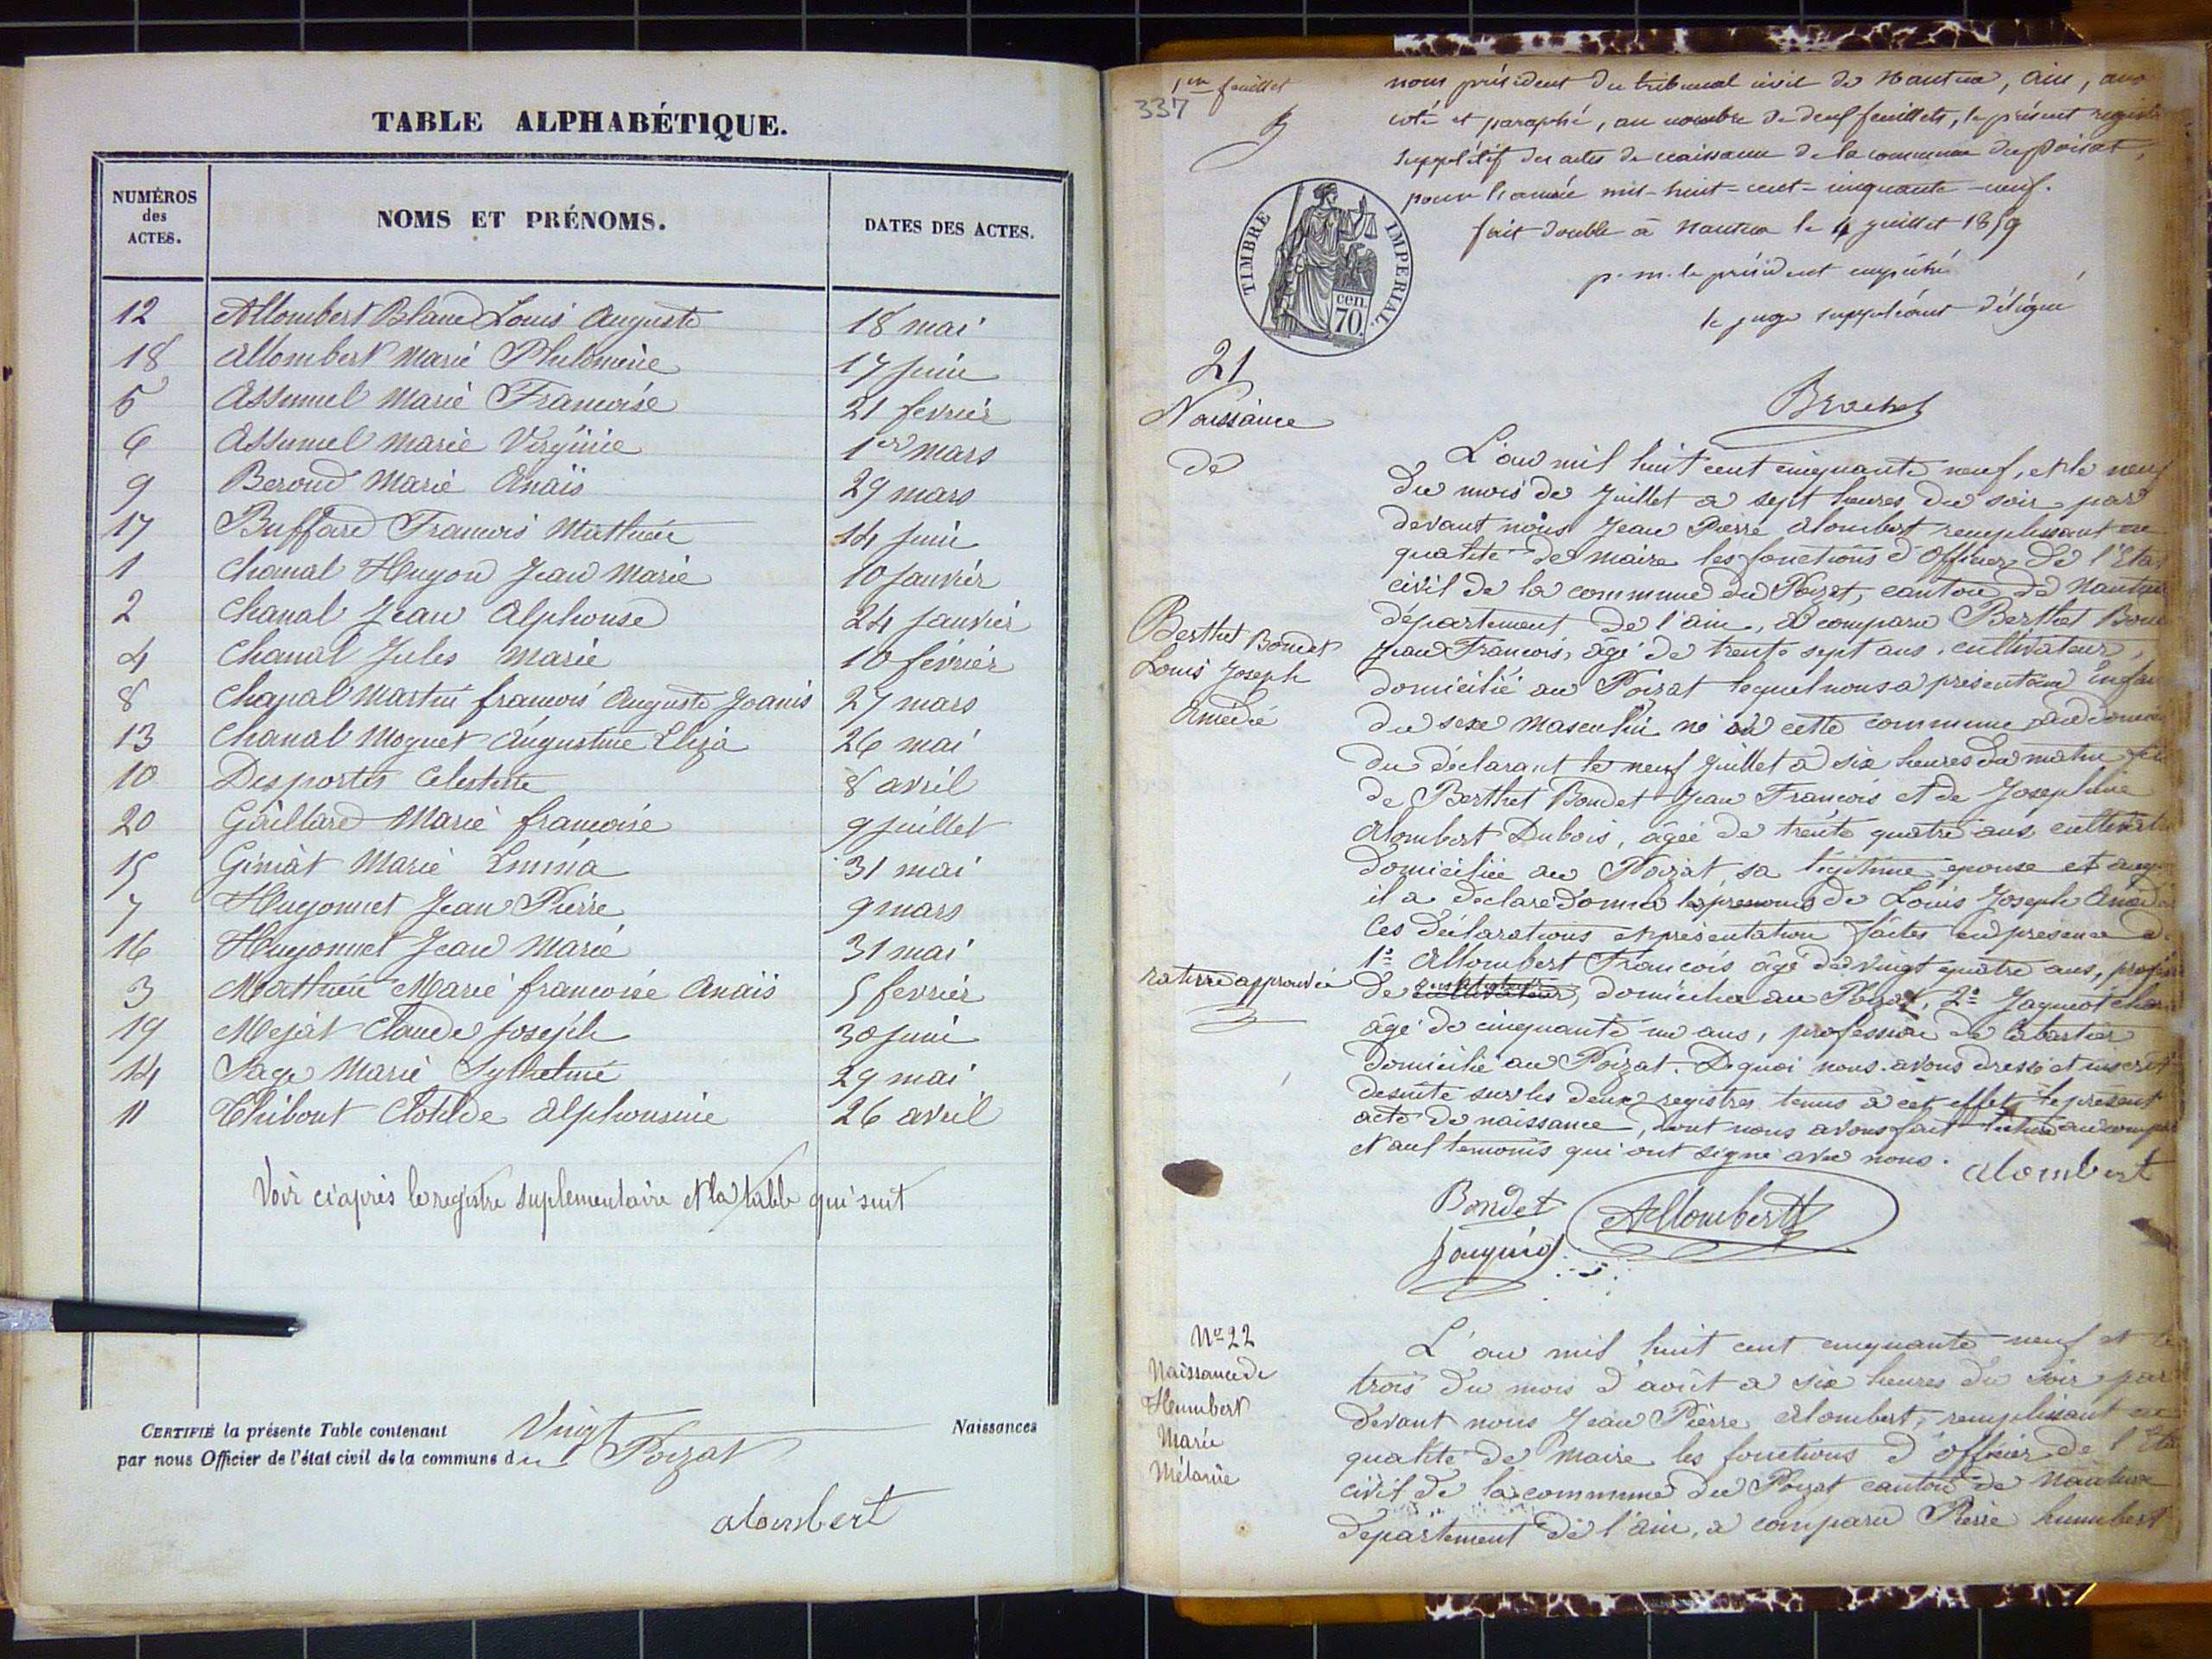 TABLE ALPHABÉTIQUE.
NUMÉROS des ACTES.
NOMS ET PRÉNOMS.
DATES DES ACTES.
12 Allombert Blanc Louis Auguste 18 mai
18 Allombert Marie Philomène 17 juin
5 Assumel Marie Francoise 21 fevrier
6 Assumel Marie Virginie 1er mars
9 Beroud Marie Anaïs 29 mars
17 Buffard Francois Mathieu 14 juin
1 Chanal Hugon Jean Marie 10 janvier
2 Chanal Jean Alphonse 24 janvier
4 Chanal Jules Marie 10 février
8 Chanal Martin francois Auguste Joanis 27 mars
13 Chanal Moguet Augustine Eliza 26 mai
10 Desportes Celestine 8 avril
20 Gaillard Marie francoise 9 juillet
15 Giniat Marie Emma 31 mai
7 Hugonnet Jean Pierre 9 mars
16 Hugonnet Jean Marie 31 mai
3 Mathieu Marie francoise Anaïs 5 fevrier
19 Mejat Claude Joseph 30 juin
14 Sage Marie 29 mai
11 Thibout Clotilde Alphonsine 26 avril
Voir ci après le registre suplementaire et la table qui suit
CERTIFIÉ la présente Table contenant Vingt Naissances
par nous Officier de l'état civil de la commune du Poizat
alombert
1er feuillet
337
nous président du tribunal civil de Nantua, Ain, avons
coté et paraphé, au nombre de deux feuillets, le présent registre
supplétif des actes de naissance de la commune du poisat,
pour l'année mil-huit-cent-cinquante-neuf.
fait double à Nantua le 4 juillet 1859
p. m. le président empêché
le juge suppléant délégué
TIMBRE IMPERIAL
70 cen.
21
Naissance
de
Berthet Bondet
Louis Joseph
Amédée
L'an mil huit cent cinquante neuf, et le neuf
du mois de Juillet a sept heures du soir par
devant nous Jean Pierre Alombert remplissant en
qualité de maire les fonctions d'Officier de l'Etat
civil de la commune du Poizat, canton de Nantua
département de l'ain, a comparu Berthet Bon
Jean Francois, âgé de trente sept ans, cultivateur,
domicilié au Poizat lequel nous a présenté un Enfan
du sexe masculin né en cette commune au domici
du déclarant le neuf juillet a six heures du matin fils
de Berthet Bondet Jean François et de Josephine
Alombert Dubois, âgée de trente quatre ans cultivatri
domiciliée au Poizat, sa légitime épouse et auquel
il a declaré donner les prenoms de Louis Joseph Amédé
Ces déclarations et présentation faites en presence de
1º Allombert Francois âgé de vingt quatre ans, profession
rature approuvée
de cultivateur, domicilié au Poizat, 2º Jaquiot
âgé de cinquante un ans, profession de Cabartier
domicilié au Poizat. De quoi nous avons dressé et inscrit
desuite sur les deux registres tenus a cet effet le present
acte de naissance, dont nous avons fait lecture au compar
et aux temoins qui ont signé avec nous.
alombert
Bondet
Allombert
Nº 22
Naissance de
Humbert
Marie
Mélanie
L'an mil huit cent cinquante neuf et le
trois du mois d'août a six heures du soir par
devant nous Jean Pierre Alombert, remplissant en
qualité de Maire les fonctions d'officier de l'Eta
civil de la commune du Poizat canton de Nantua
département de l'ain, a comparu Pierre humbert